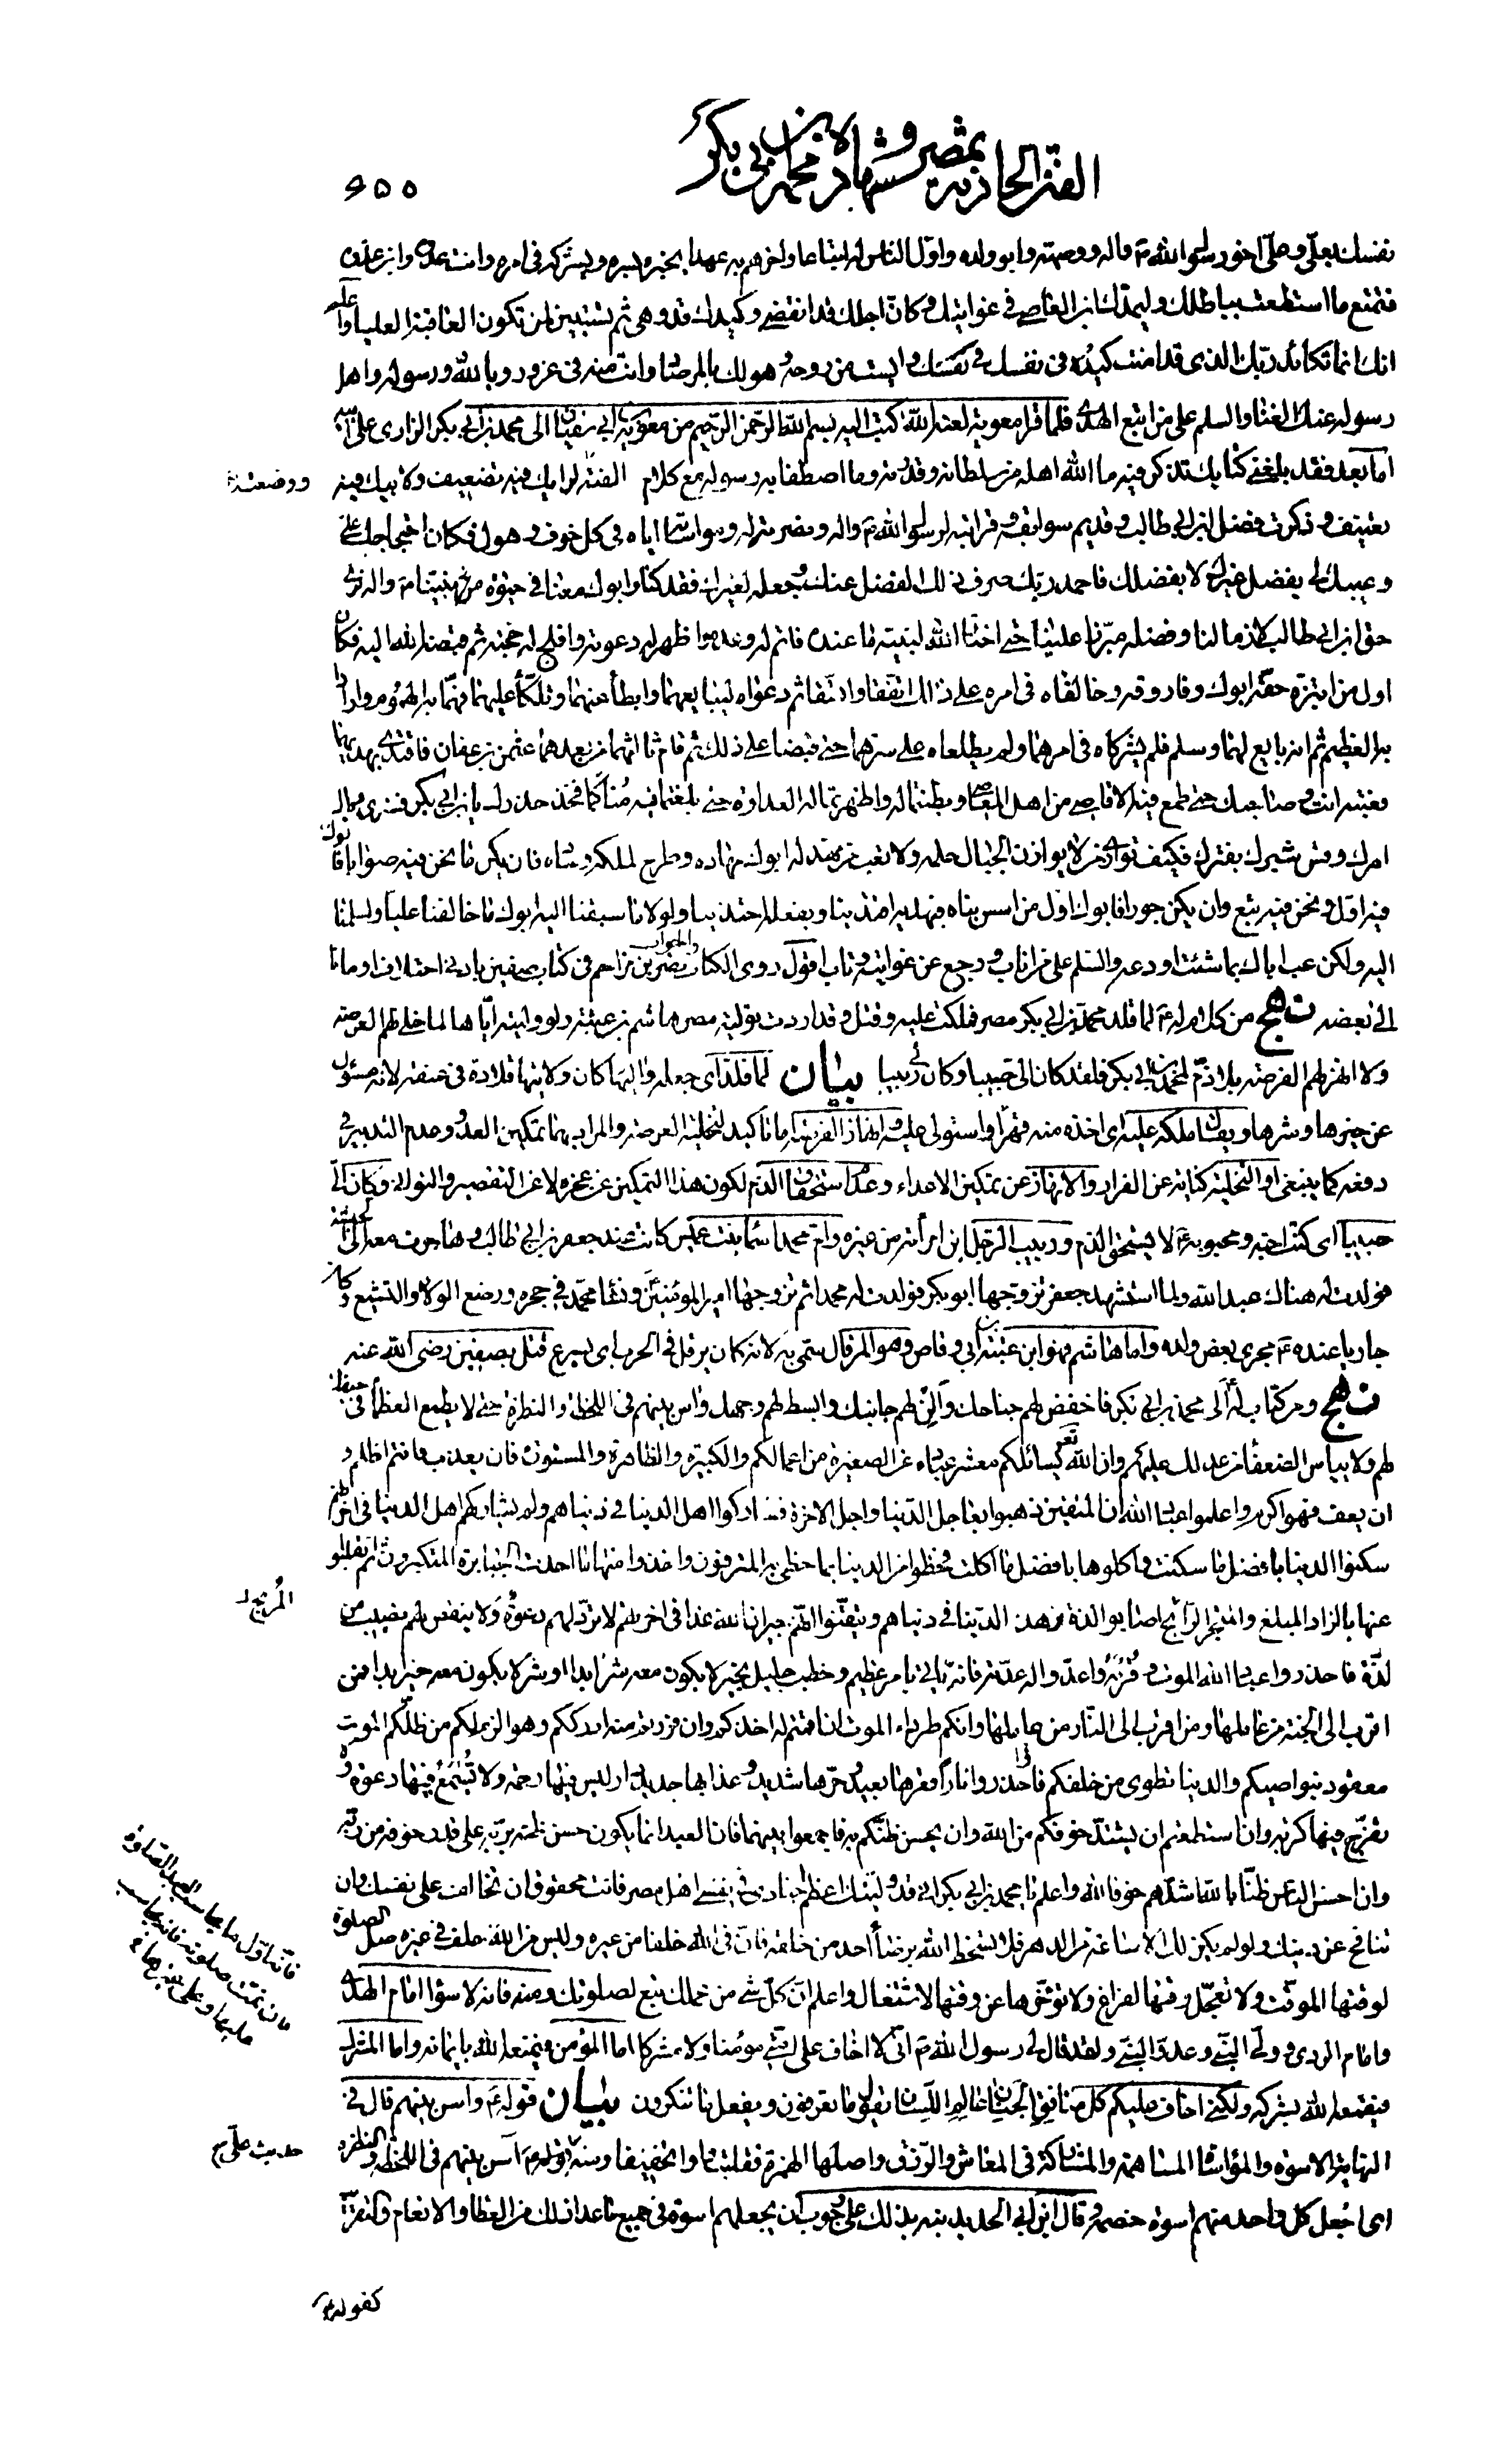 الفتن الحادثة بمصر وشهادة محمد بن أبي بكر
٦٥٥
نفسك بعلي وعلي أخو رسول الله ص واله ووصيه وابو ولده واول الناس له اتباعا واخرهم به عهدا يخبره بسره ويشركه في امره وانت عدوه وابن عدوه
فتمتع ما استطعت بباطلك وليمددك ابن العاص في غوايتك وكان اجلك قد انقضى وكيدك قد وهى ثم تستبين لمن تكون العاقبة العليا واعلم
انك انما تكايد ربك الذي قد امنت كيده في نفسك وايست من روحه وهو لك بالمرصاد وانت منه في غرور وبالله ورسوله واهل
رسوله عنك الغنا والسلم على من اتبع الهدى فلما قرأ معوية لعنه الله كتب اليه بسم الله الرحمن الرحيم من معوية بن ابي سفيان الى محمد بن ابي بكر الزاري على ابيه
اما بعد فقد بلغني كتابك تذكر فيه ما الله اهله من سلطانه وقدرته وما اصطفا به رسوله مع كلام الفته لرايك فيه تضعيف ولابيك فيه
ووضعته
تعنيف وذكرت فضل ابن ابي طالب وقديم سوابقه وقرابته لرسول الله ص واله ونصرته له ومواساته اياه في كل خوف وهول فكان احتجاجك علي
وعيبك لي بفضل غيرك لا بفضلك فاحمد ربك صرف ذلك الفضل عنك وجعله لغيرك فقد كنا وابوك معنا في حيوة من نبينا ص واله نرى
حق ابن ابي طالب لازما لنا وفضله مبرزا علينا حتى اختار الله لنبيه ما عنده فاتم له وعده واظهر له دعوته وافلج له حجته ثم قبضه الله اليه فكان
اول من ابتزه حقه ابوك وفاروقه وخالفاه في امره على ذلك اتفقا واتسقا ثم دعواه ليبايعهما وابطأ عنهما وتلكأ عليهما فهما به الهموم وارادا
به العظيم ثم انه بايع لهما وسلم فلم يشركاه في امرهما ولم يطلعاه على سرهما حتى قبضا على ذلك ثم قام ثالثهما من بعدهما عثمن بن عفان فاقتدى بهديهما
فعبته انت وصاحبك حتى طمع فيه الاقاصي من اهل المعاصي وبطنتما له واظهرتما له العداوة حتى بلغتما فيه مناكما فخذ حذرك يابن ابي بكر فسترى وبال
امرك وقس شبرك بفترك فكيف توازي من لا يوازن الجبال حلمه ولا تعب من مهد له ابوك مهاده وطرح لملكه وساده فان يكن ما نحن فيه صوابا فابوك
فيه اول ونحن فيه تبع وان يكن جورا فابوك اول من اسس بناه فبهديه اقتدينا وبفعله احتذينا ولولا ما سبقنا اليه ابوك ما خالفنا عليا ولسلمنا
اليه ولكن عب اباك بما شئت او دعه والسلم على من اناب ورجع عن غوايته وتاب اقول روى الكتاب والجواب نصر بن مزاحم في كتاب صفين بادنى اختلاف اومأنا
الى بعضه نهج من كلام له ع لما قلد محمد بن ابي بكر مصر فملكت عليه وقتل وقد اردت تولية مصر هاشم بن عتبة ولو وليته اياها لما خلى لهم العرصة
ولا انهزهم الفرصة بلا ذم لمحمد بن ابي بكر فلقد كان الي حبيبا وكان لي ربيبا بيان لما قلد اي جعله واليها كان ولايتها قلادة في عنقه لانه مسئول
عن خيرها وشرها ويقال ملكه عليه اي اخذه منه قهرا واستولى عليه وانهاز الفرصة اما تاكيد لتخلية العرصة والمراد بهما تمكين العدو وعدم التدبير في
دفعه كما ينبغي او التخلية كناية عن الفرار والانهاز عن تمكين الاعداء وعدم استحقاق الذم لكون هذا التمكين عن عجزه لا عن التقصير والتواني وكان الي
حبيبا اي كنت احبه ومحبوبه ع لا يستحق الذم وربيب الرجل ابن امرأته من غيره وام محمد اسما بنت عميس كانت عند جعفر بن ابي طالب وهاجرت معه الى الحبشة
فولدت له هناك عبد الله ولما استشهد جعفر تزوجها ابو بكر فولدت له محمدا ثم تزوجها امير المؤمنين ونشأ محمد في حجره ورضع الولاء والتشيع وكان
جاريا عنده ع مجرى بعض ولده واما هاشم فهو ابن عتبة بن ابي وقاص وهو المرقال سمي به لانه كان يرقل في الحرب اي يسرع قتل بصفين رضي الله عنه
نهج ومن كتاب له ع الى محمد بن ابي بكر فاخفض لهم جناحك والن لهم جانبك وابسط لهم وجهك واس بينهم في اللحظة والنظرة حتى لا يطمع العظماء في حيفك
لهم ولا ييأس الضعفاء من عدلك عليهم وان الله تع يسائلكم معشر عباده عن الصغيرة من اعمالكم والكبيرة والظاهرة والمستورة فان يعذب فانتم اظلم و
ان يعف فهو اكرم واعلموا عباد الله ان المتقين ذهبوا بعاجل الدنيا واجل الاخرة فشاركوا اهل الدنيا في دنياهم ولم يشاركهم اهل الدنيا في اخرتهم
سكنوا الدنيا بافضل ما سكنت واكلوها بافضل ما اكلت فحظوا من الدنيا بما حظي به المترفون واخذوا منها ما اخذت الجبابرة المتكبرون ثم انقلبوا
عنها بالزاد المبلغ والمتجر الرابح اصابوا لذة زهد الدنيا في دنياهم وتيقنوا انهم جيران الله غدا في اخرتهم لا ترد لهم دعوة ولا ينقص لهم نصيب من
المربح
لذة فاحذروا عباد الله الموت وقربه واعدوا له عدته فانه ياتي بامر عظيم وخطب جليل بخير لا يكون معه شر ابدا او شر لا يكون معه خير ابدا فمن
اقرب الى الجنة من عاملها ومن اقرب الى النار من عاملها وانكم طرداء الموت ان اقمتم له اخذكم وان فررتم منه ادرككم وهو الزم لكم من ظلكم الموت
معقود بنواصيكم والدنيا تطوى من خلفكم فاحذروا نارا قعرها بعيد وحرها شديد وعذابها جديد دار ليس فيها رحمة ولا تسمع فيها دعوة و
تفرج فيها كربة وان استطعتم ان يشتد خوفكم من الله وان يحسن ظنكم به فاجمعوا بينهما فان العبد انما يكون حسن ظنه بربه على قدر خوفه من ربه
وان احسن الناس ظنا بالله اشدهم خوفا لله واعلم يا محمد بن ابي بكر اني قد وليتك اعظم اجنادي في نفسي اهل مصر فانت محقوق ان تخالف على نفسك وان
تنافح عن دينك ولو لم يكن لك الا ساعة من الدهر فلا تسخط الله برضا احد من خلقه فان في الله خلفا من غيره وليس من الله خلف في غيره صل الصلوة
لوقتها الموقت ولا تعجل وقتها لفراغ ولا تؤخرها عن وقتها لاشتغال واعلم ان كل شي من عملك تبع لصلوتك ومنه فانه لا سواء امام الهدى
فانه اول ما يحاسب العبد الصلوة
وامام الردى وولي النبي وعدو النبي ولقد قال لي رسول الله ص اني لا اخاف على امتي مؤمنا ولا مشركا اما المؤمن فيمنعه الله بايمانه واما المشرك
فيقمعه الله بشركه ولكني اخاف عليكم كل منافق الجنان عالم اللسان يقول ما تعرفون ويفعل ما تنكرون بيان قوله ع واس بينهم قال في
النهاية الاسوة والمؤاساة المساهمة والمشاركة في المعاش والرزق واصلها الهمزة فقلبت واوا تخفيفا ومنه قوله ع آس بينهم في اللحظة والنظرة
حديث علي ع
اي اجعل كل واحد منهم اسوة خصمه وقال ابن ابي الحديد نبه بذلك على وجوب ان يجعلهم اسوة في جميع ما عدا ذلك من العطاء والانعام والتقريب
كقوله